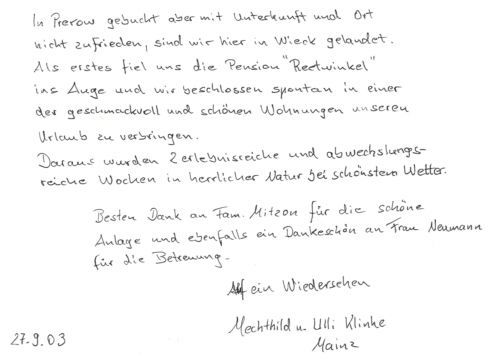 In Prerow gebucht aber mit Unterkunft und Ort
nicht zufrieden, sind wir hier in Wieck gelandet.
Als erstes fiel uns die Pension "Reetwinkel"
ins Auge und wir beschlossen spontan in einer
der geschmackvoll und schönen Wohnungen unseren
Urlaub zu verbringen.
Daraus wurden 2 erlebnisreiche und abwechslungs-
reiche Wochen in herrlicher Natur bei schönstem Wetter.
Besten Dank an Fam. Mitzon für die schöne
Anlage und ebenfalls ein Dankeschön an Frau Neumann
für die Betreuung.
Auf ein Wiedersehen
Mechthild u. Ulli Klinke
27.9.03 Mainz